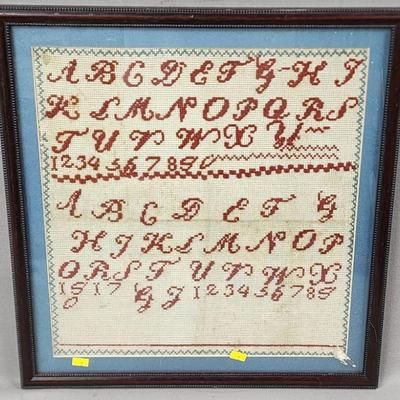 A B C D E F G H I
K L M N O P Q R S
T U V W X Y
1 2 3 4 5 6 7 8 9 0
A B C D E F G
H J K L M N O P
Q R S T U V W X
1 9 1 7 G J 1 2 3 4 5 6 7 8 9
0